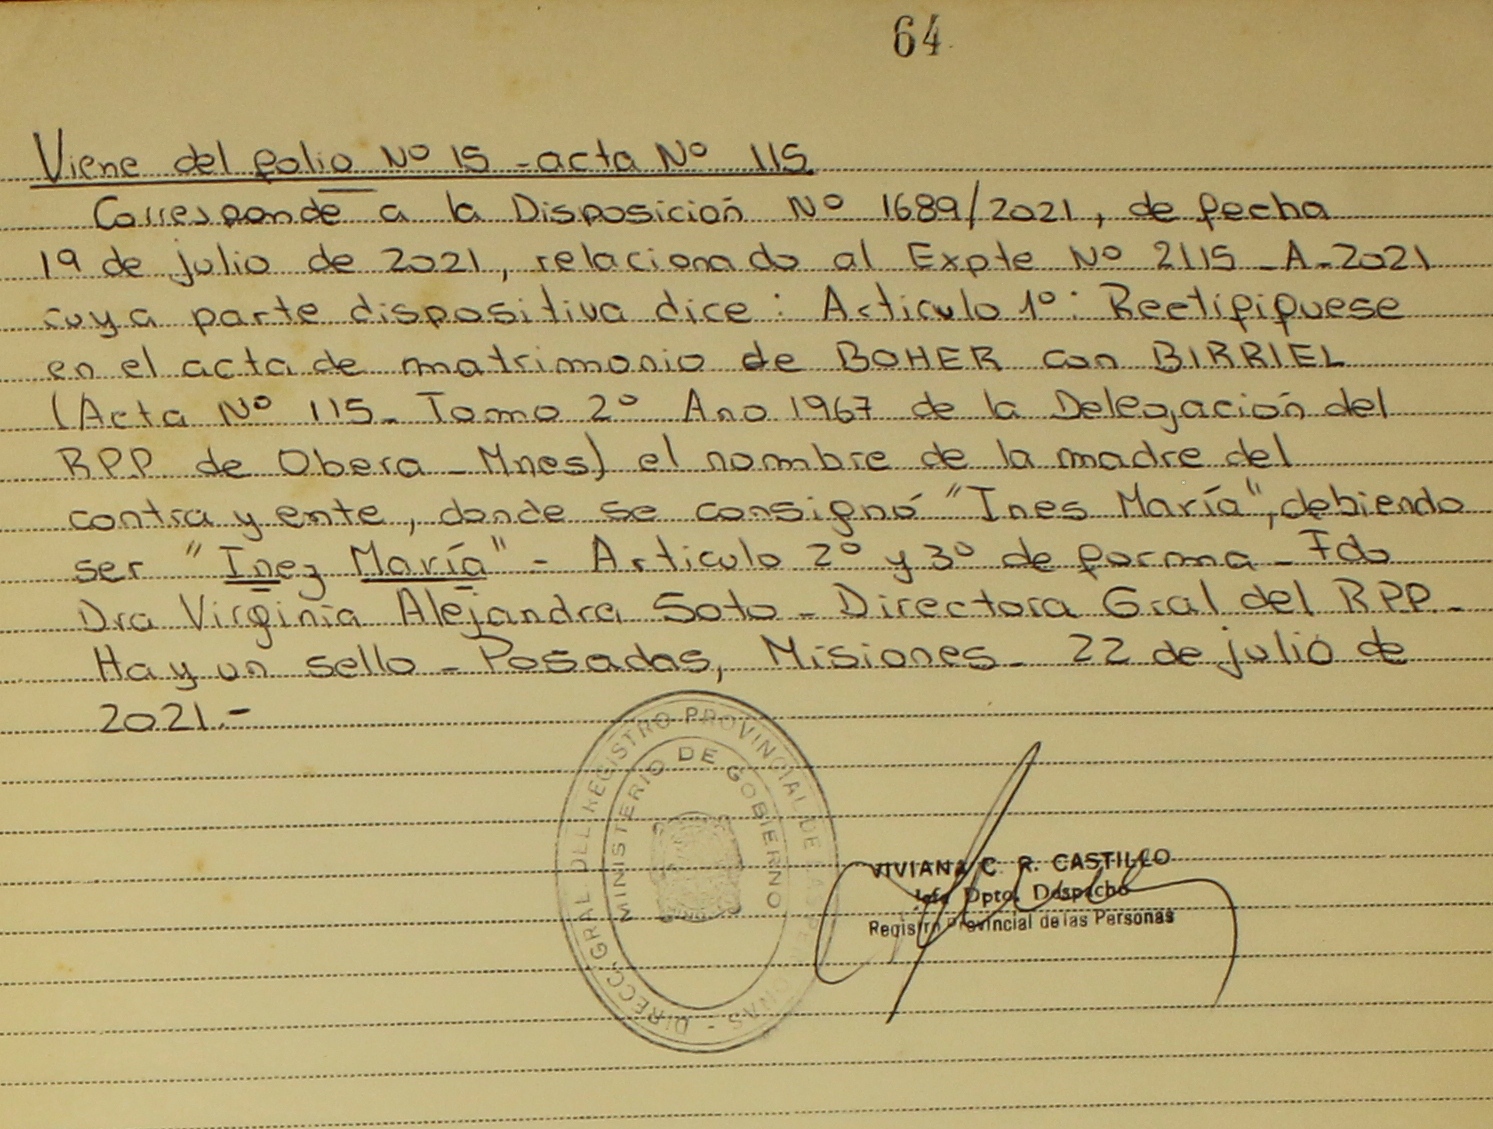 64
Viene del folio Nº 15 - acta Nº 115
Corresponde a la Disposición Nº 1689/2021, de fecha
19 de julio de 2021, relacionado al Expte Nº 2115 - A - 2021
cuya parte dispositiva dice: Articulo 1º: Rectifiquese
en el acta de matrimonio de BOHER con BIRRIEL
(Acta Nº 115 - Tomo 2º Ano 1967 de la Delegación del
RPP de Obera - Mnes) el nombre de la madre del
contrayente, donde se consignó "Ines María", debiendo
ser "Inez María" - Articulo 2º y 3º de forma - Fdo
Dra Virginia Alejandra Soto - Directora Gral del RPP -
Hay un sello - Posadas, Misiones - 22 de julio de
2021.-
DIRECC. GRAL DEL REGISTRO PROVINCIAL DE LAS PERSONAS -
MINISTERIO DE GOBIERNO
VIVIANA C. R. CASTILLO
Jefa Dpto. Despacho
Registro Provincial de las Personas